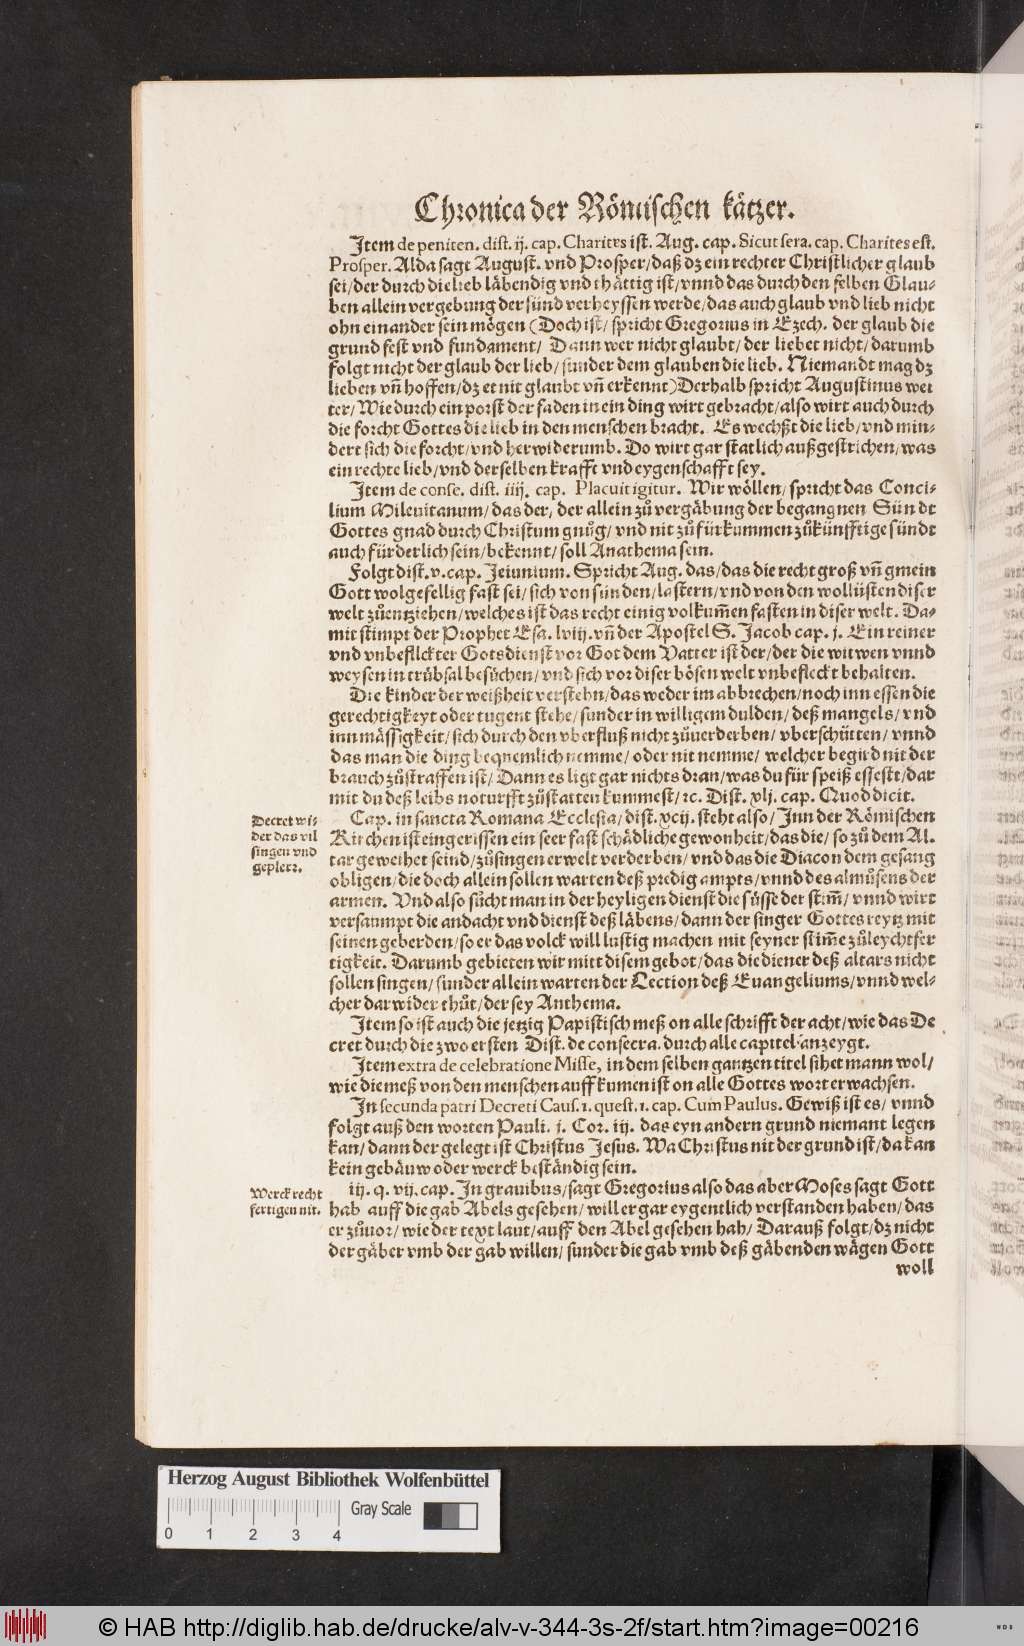 Chronica der Römischen kätzer.
Item de peniten. dist. ij. cap. Charites ist. Aug. cap. Sicut sera. cap. Charites est.
Prosper. Alda sagt August. vnd Prosper/daß dz ein rechter Christlicher glaub
sei/der durch die lieb läbendig vnd thättig ist/vnnd das durch den selben Glau-
ben allein vergebung der sünd verheyssen werde/das auch glaub vnd lieb nicht
ohn einander sein mögen (Doch ist/ spricht Gregorius in Ezech. der glaub die
grundfest vnd fundament/ Dann wer nicht glaubt/ der liebet nicht/ darumb
folgt nicht der glaub der lieb/ sunder dem glauben die lieb. Niemandt mag dz
lieben vñ hoffen/dz er nit glaubt vñ erkennt) Derhalb spricht Augustinus wei
ter/ Wie durch ein porst der faden in ein ding wirt gebracht/also wirt auch durch
die forcht Gottes die lieb in den menschen bracht. Es wechßt die lieb/vnd min-
dert sich die forcht/vnd herwiderumb. Do wirt gar statlich außgestrichen/was
ein rechte lieb/vnd derselben krafft vnd eygenschafft sey.
Item de conse. dist. iiij. cap. Placuit igitur. Wir wöllen/ spricht das Conci-
lium Mileuitanum/das der, der allein zů vergäbung der begangnen Sündt
Gottes gnad durch Christum gnůg/ vnd nit zů fürkummen zůkünfftige sündt
auch fürderlich sein/bekennt/ soll Anathema sein.
Folgt dist. v. cap. Ieiunium. Spricht Aug. das/das die recht groß vñ gmein
Gott wolgefellig fast sei/sich von sünden/lastern/vnd von den wollüsten diser
welt zůentziehen/welches ist das recht einig volkum̃en fasten in diser welt. Da-
mit stimpt der Prophet Esa. lviij. vñ der Apostel S. Jacob cap. j. Ein reiner
vnd vnbeflickter Gotsdienst vor Got dem Vatter ist der/der die witwen vnnd
weysen in trübsal besůchen/vnd sich vor diser bösen welt vnbefleckt behalten.
Die kinder der weißheit verstehn/das weder im abbrechen/noch inn essen die
gerechtigkeyt oder tugent stehe/ sunder in willigem dulden/ deß mangels/ vnd
inn mässigkeit/sich durch den vberfluß nicht zůuerderben/ vberschütten/ vnnd
das man die ding bequemlich nemme/ oder nit nemme/ welcher begird nit der
brauch zůstraffen ist/ Dann es ligt gar nichts dran/was du für speiß essest/dar
mit du deß leibs noturfft zůstatten kummest/ ꝛc. Dist. xlj. cap. Quod dicit.
Decret wi-
der das vil
singen vnd
geplerr.
Cap. in sancta Romana Ecclesia/dist. xcij. steht also/ Inn der Römischen
Kirchen ist eingerissen ein seer fast schädliche gewonheit/das die/ so zů dem Al-
tar geweihet seind/zůsingen erwelt werden/vnd das die Diacon dem gesang
obligen/die doch allein sollen warten deß predig ampts/vnnd des almůsens der
armen. Vnd also sůcht man in der heyligen dienst die süsse der stim̃/ vnnd wirt
versaumpt die andacht vnd dienst deß läbens/dann der singer Gottes reytz mit
seinen geberden/so er das volck will lustig machen mit seyner stim̃e zůleychtfer
tigkeit. Darumb gebieten wir mitt disem gebot/das die diener deß altars nicht
sollen singen/ sunder allein warten der Lection deß Euangeliums/vnnd wel-
cher darwider thůt/der sey Anthema.
Item so ist auch die jetzig Papistisch meß on alle schrifft der acht/wie das De
cret durch die zwo ersten Dist. de consecra. durch alle capitel anzeygt.
Item extra de celebratione Misse, in dem selben gantzen titel sihet mann wol/
wie die meß von den menschen auffkumen ist on alle Gottes wort erwachsen.
In secunda patri Decreti Caus. 1. quest. 1. cap. Cum Paulus. Gewiß ist es/ vnnd
folgt auß den worten Pauli. j. Cor. iij. das eyn andern grund niemant legen
kan/ dann der gelegt ist Christus Jesus. Wa Christus nit der grund ist/da kan
kein gebäuw oder werck beständig sein.
Werck recht
fertigen nit.
iij. q. vij. cap. In grauibus/sagt Gregorius also das aber Moses sagt Gott
hab auff die gab Abels gesehen/ will er gar eygentlich verstanden haben/ das
er zůuor/ wie der text laut/auff den Abel gesehen hab/ Darauß folgt/dz nicht
der gäber vmb der gab willen/ sunder die gab vmb deß gäbenden wägen Gott
woll
Herzog August Bibliothek Wolfenbüttel
Gray Scale
0 1 2 3 4
© HAB http://diglib.hab.de/drucke/alv-v-344-3s-2f/start.htm?image=00216